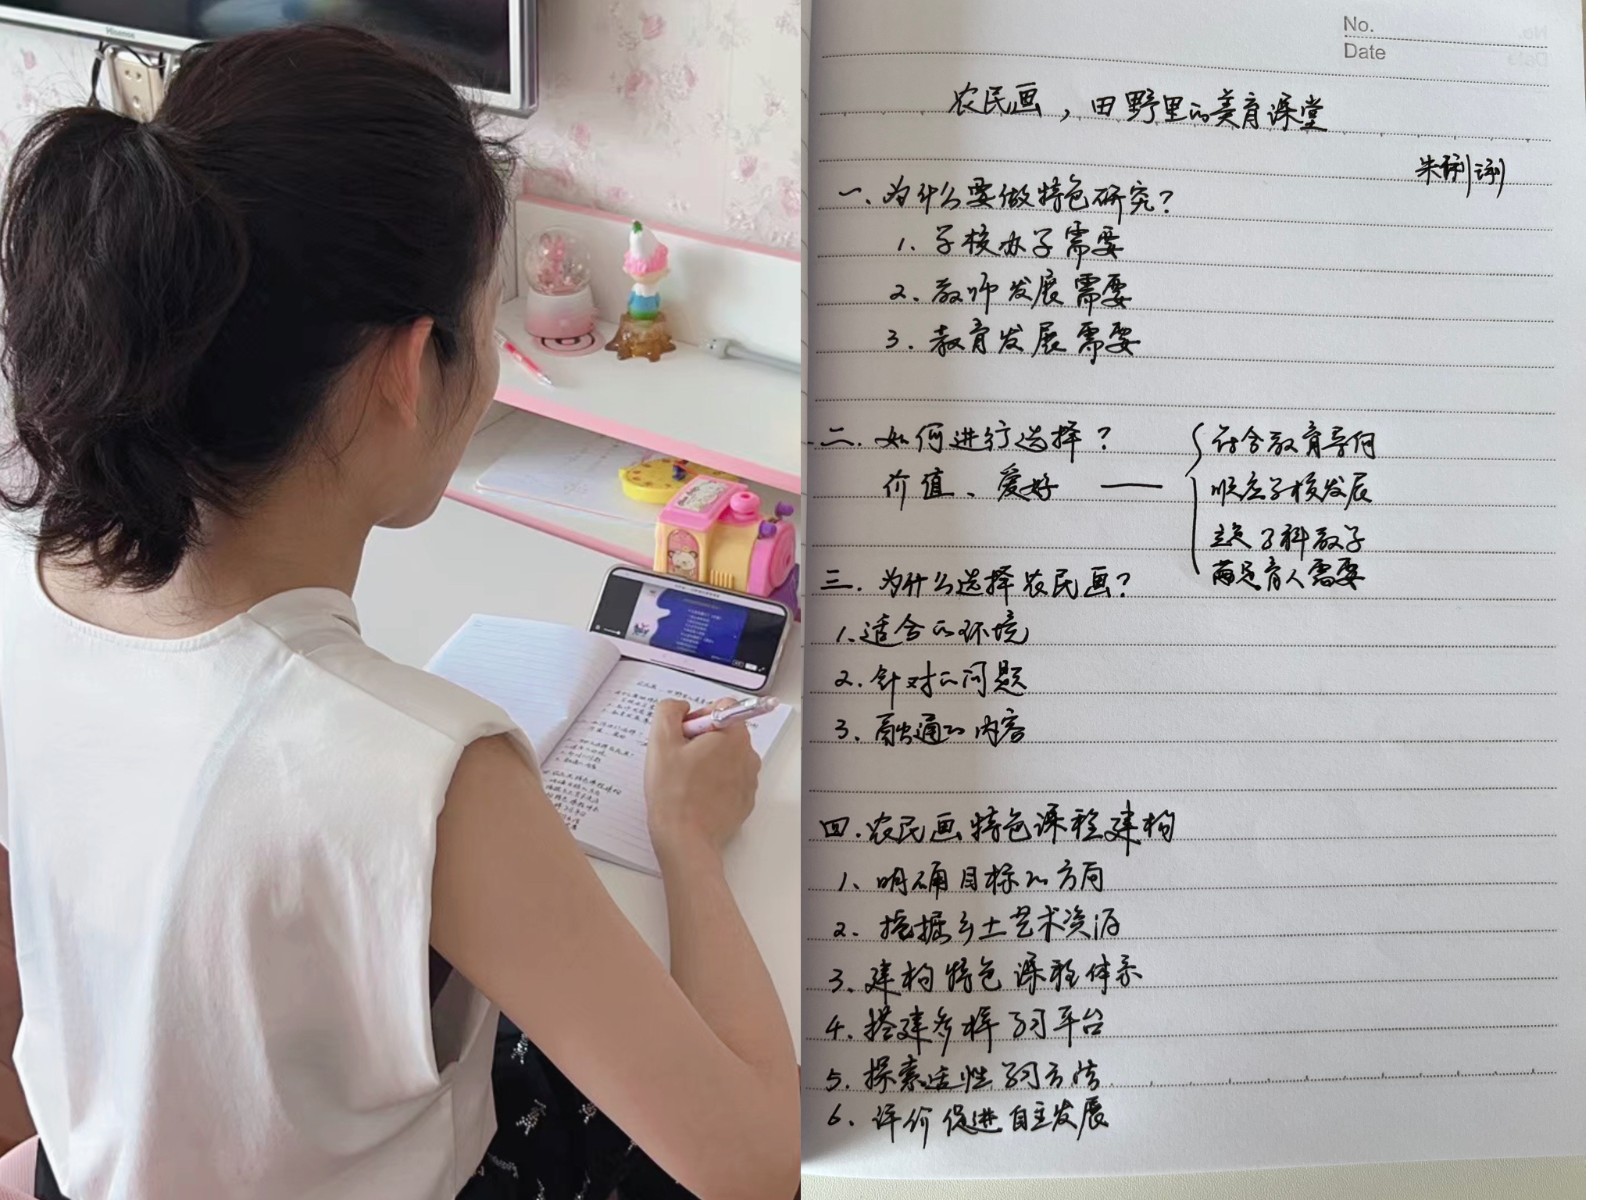 Hisense
No.
Date
农民画，田野里的美育课堂
一.为什么要做特色研究？
1.学校办学需要
2.教师发展需要
3.教育发展需要
二.如何进行选择？
价值、爱好 ——
符合教育导向
顺应学校发展
立足学科教学
满足育人需要
三.为什么选择农民画？
1.适合的环境
2.针对的问题
3.融通的内容
四.农民画特色课程建构
1、明确目标的方向
2.挖掘乡土艺术资源
3.建构特色课程体系
4.搭建多样学习平台
5.探索活性学习方法
6.评价促进自主发展